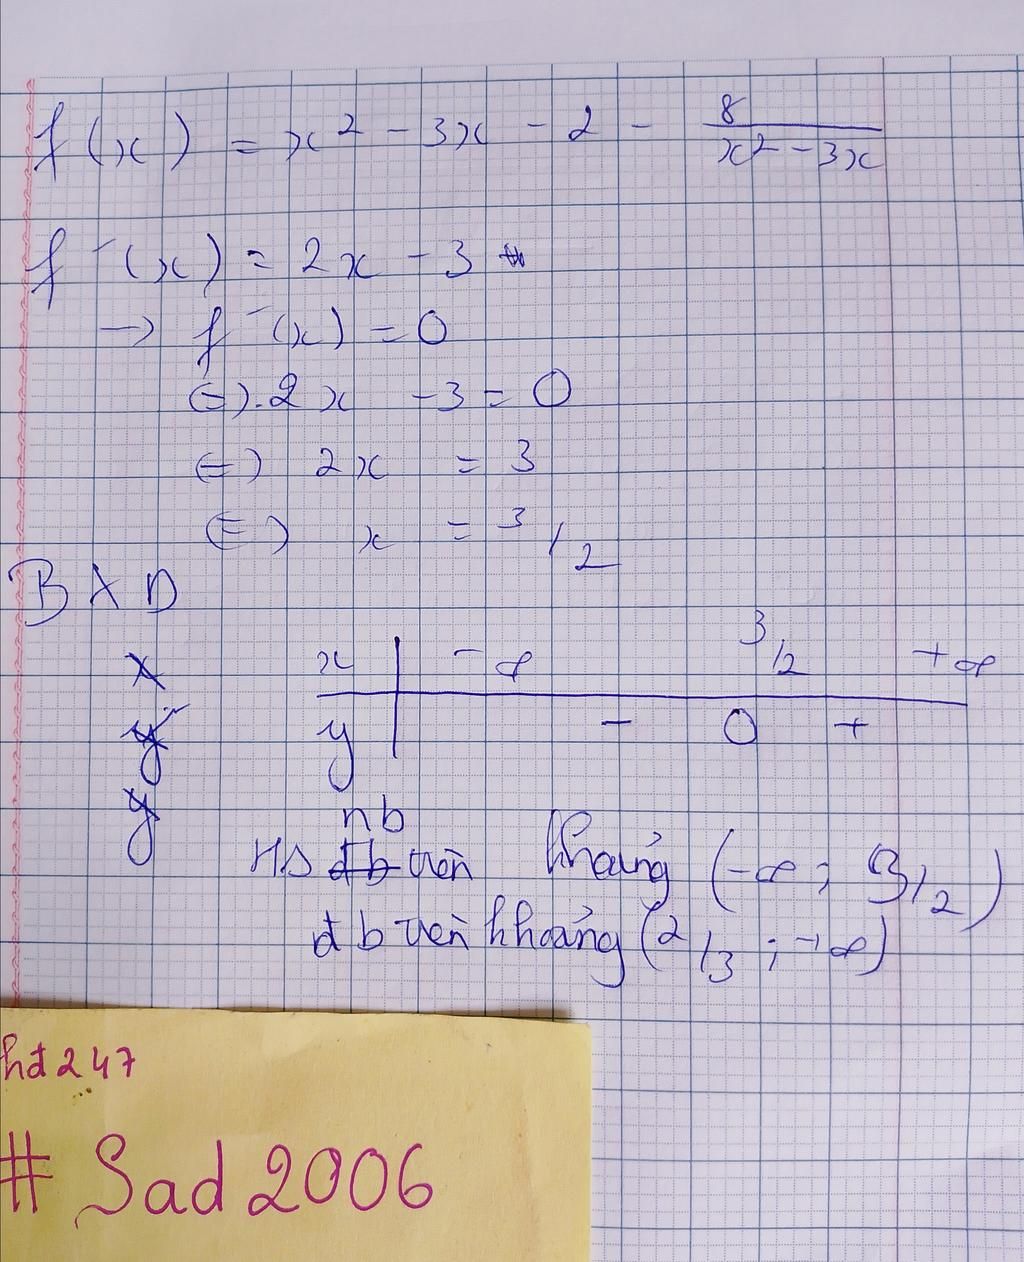 f(x) = x² - 3x - 2 - 8/(x² - 3x)
f'(x) = 2x - 3
→ f'(x) = 0
(=). 2x - 3 = 0
(=) 2x = 3
(=) x = 3/2
BXD
x
y'
y
x | -∞ 3/2 +∞
y | - 0 +
nb
HS đb trên khoảng (-∞; 3/2)
đb trên khoảng (2/3; +∞)
hđ247
# Sad 2006